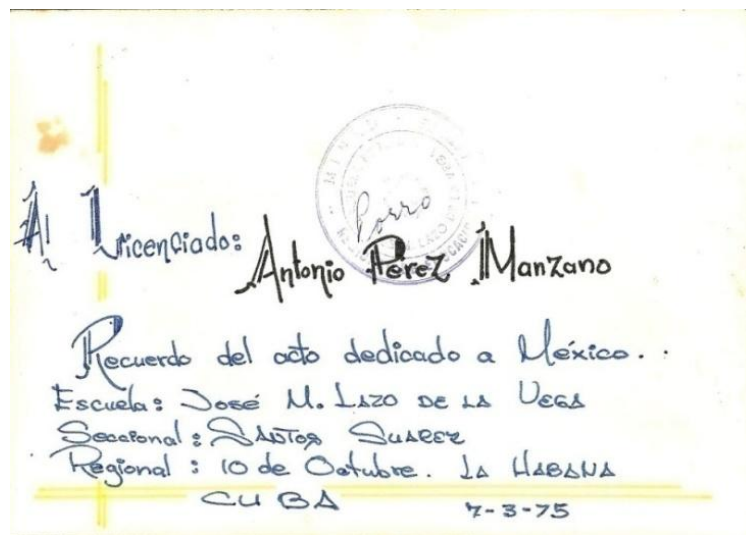 Al Licenciado:
Antonio Pérez Manzano
Porro
Recuerdo del acto dedicado a México..
Escuela: José M. LAZO DE LA VEGA
Seccional: SANTOS SUAREZ
Regional: 10 de Octubre. LA HABANA
CUBA 7-3-75